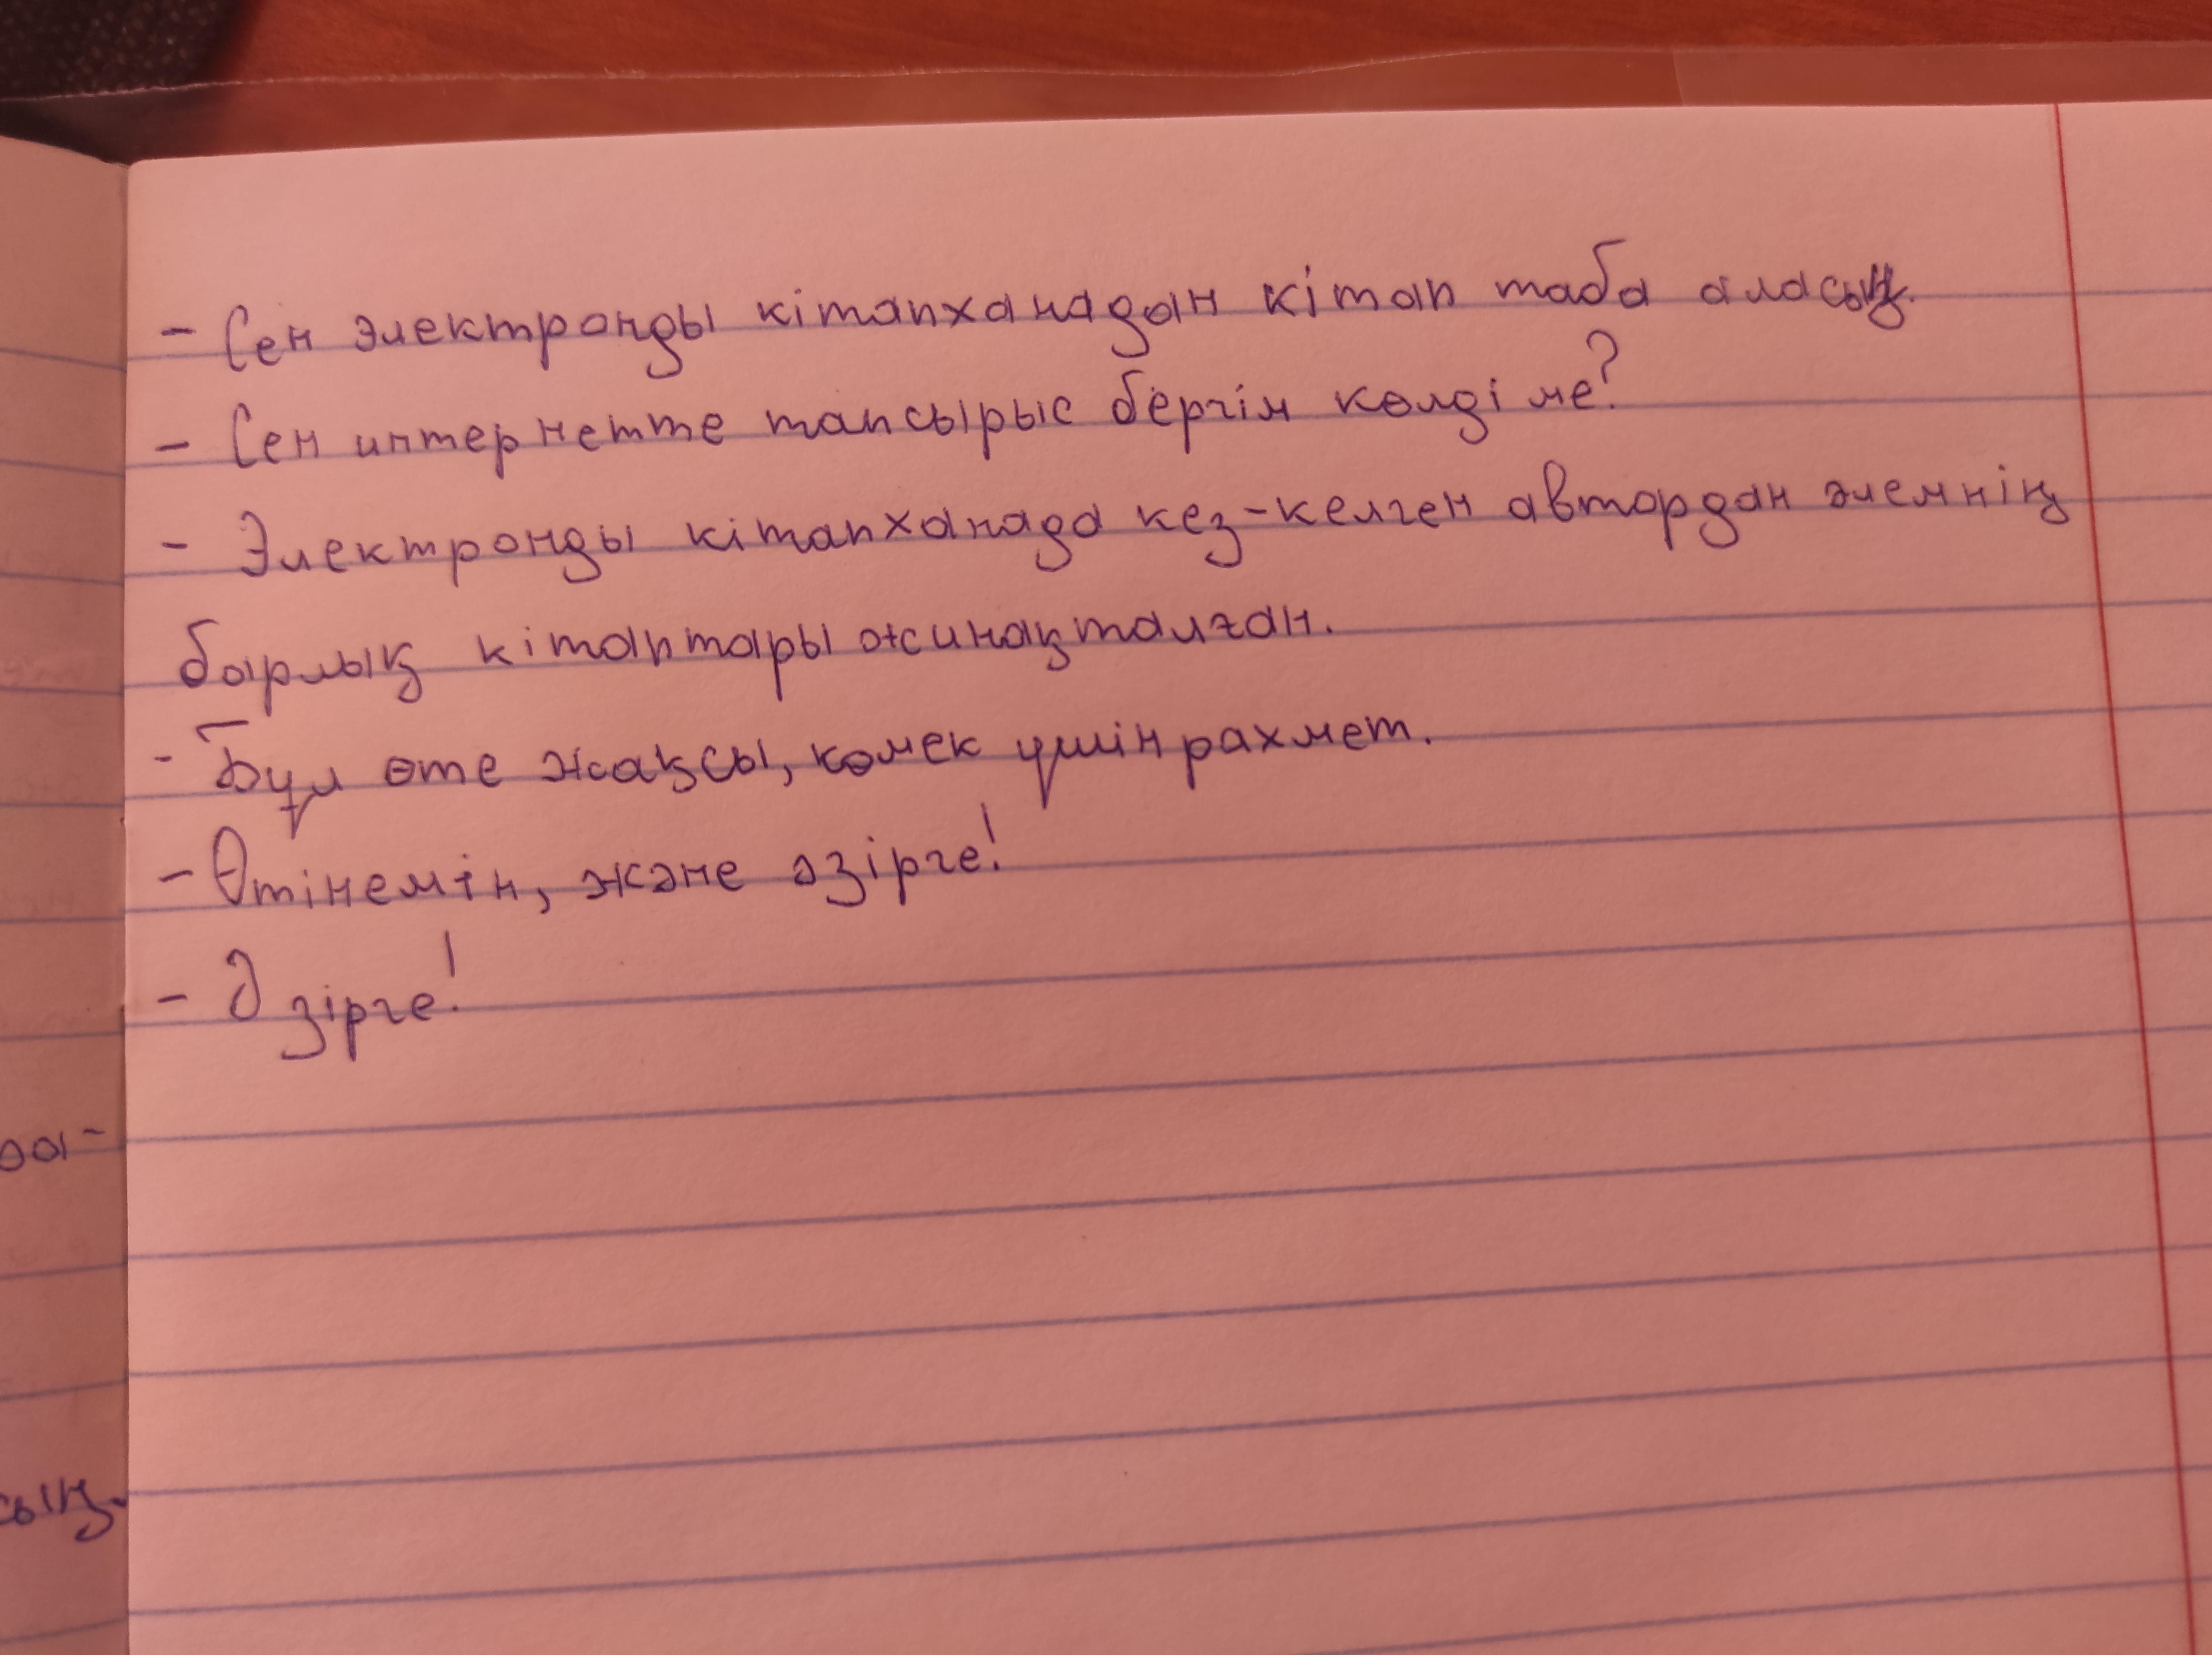 - Сен электронды кітапханадан кітап таба аласың.
- Сен интернетте тапсырыс бергім келді ме?
- Электронды кітапханада кез-келген автордан әлемнің
барлық кітаптары жинақталған.
- Бұл өте жақсы, көмек үшін рахмет.
- Өтінемін, және әзірге!
- Әзірге!
сың.